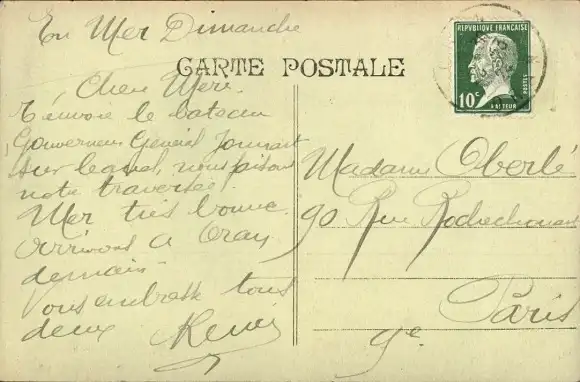 En Mer Dimanche
CARTE POSTALE
REPUBLIQUE FRANÇAISE
POSTES
10c
PASTEUR
Chere Mère.
t'envoie le bateau
Gouverneur Général Jonnart
sur lequel nous faisons
notre traversée.
Mer très bonne.
Arrivons à Oran
demain
Vous embrasse tous
deux
Madame Oberlé
90 Rue Rochechouart
Paris
9e